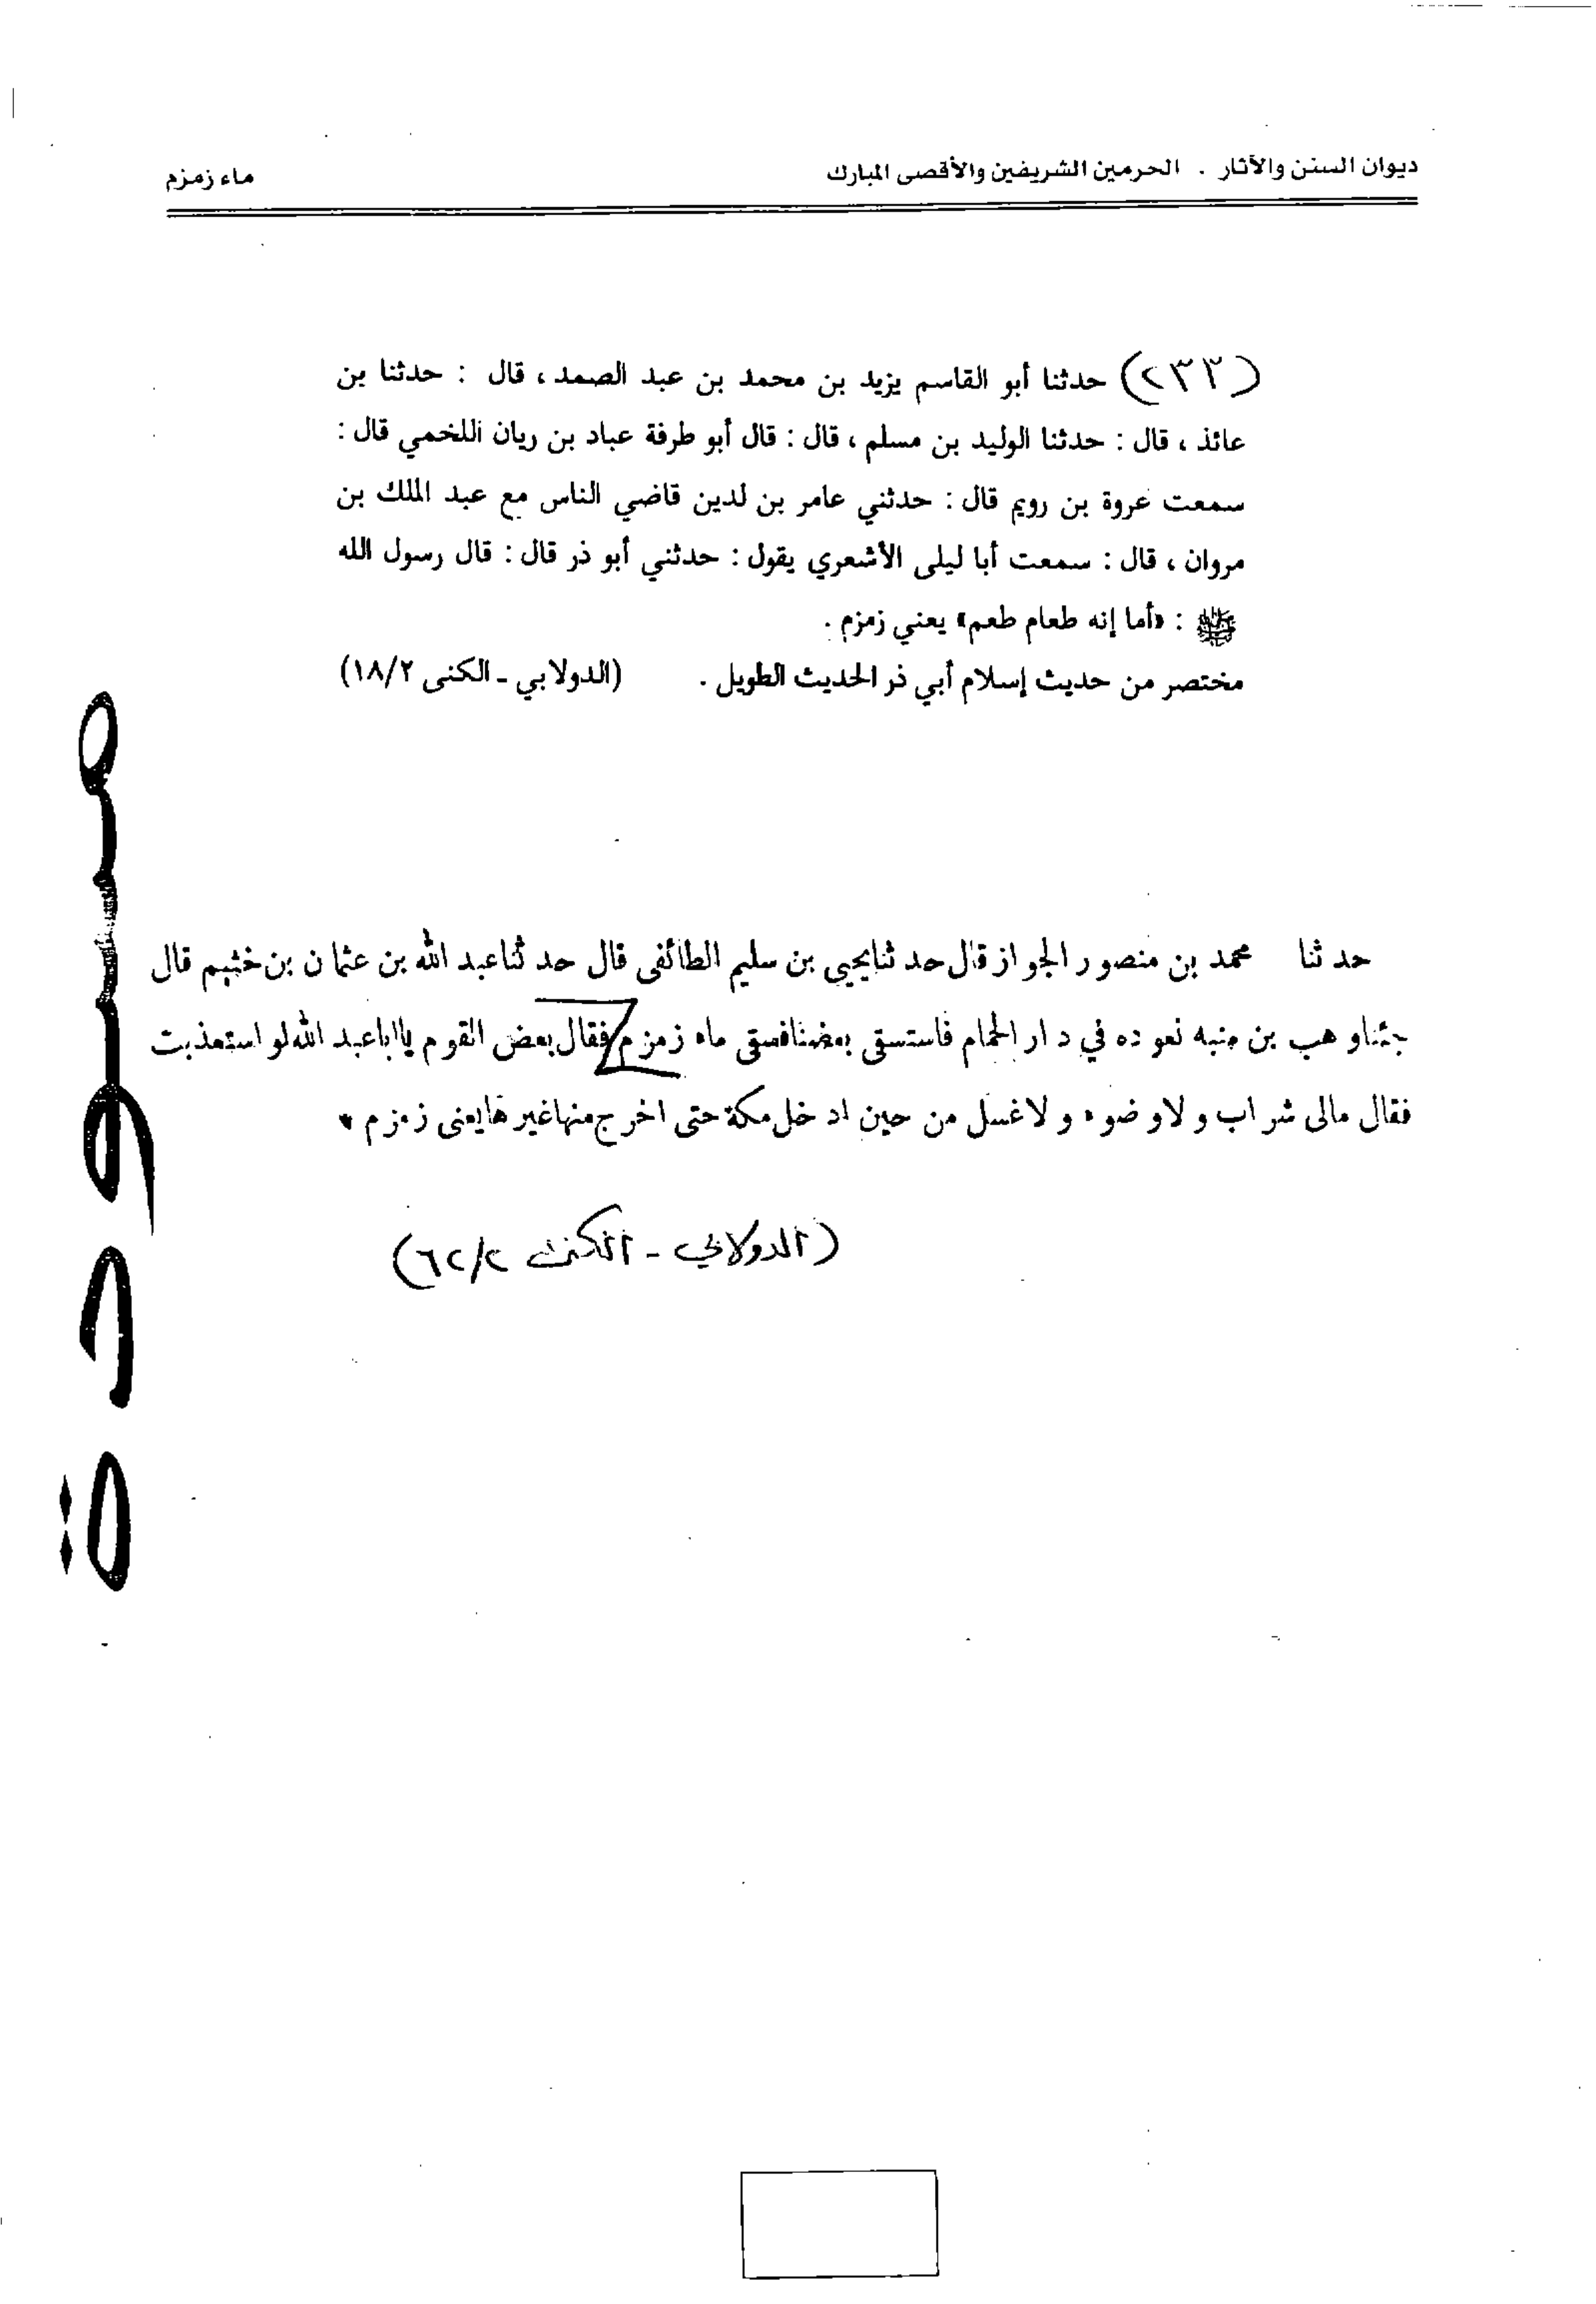 ديوان السنن والآثار . الحرمين الشريفين والأقصى المبارك
ماء زمزم
(٢٣٣) حدثنا أبو القاسم يزيد بن محمد بن عبد الصمد ، قال : حدثنا بن
عائذ ، قال : حدثنا الوليد بن مسلم ، قال : قال أبو طرفة عباد بن ريان اللخمي قال :
سمعت عروة بن رويم قال : حدثني عامر بن لدين قاضي الناس مع عبد الملك بن
مروان ، قال : سمعت أبا ليلى الأشعري يقول : حدثني أبو ذر قال : قال رسول الله
ﷺ : «أما إنه طعام طعم» يعني زمزم .
مختصر من حديث إسلام أبي ذر الحديث الطويل . (الدولابي - الكنى ١٨/٢)
حدثنا محمد بن منصور الجواز قال حدثنا يحيى بن سليم الطائفى قال حدثنا عبد الله بن عثمان بن خثيم قال
جئنا وهب بن منبه نعوده في دار الحمام فاستسقى بعضنا فسقى ماء زمزم فقال بعض القوم يا ابا عبد الله لو استعذبت
فقال مالى شراب ولا وضوء ولا غسل من حين ادخل مكة حتى اخرج منها غيرها يعنى زمزم *
(الدولابي - الكنى ٦٢/٢)
مسودة